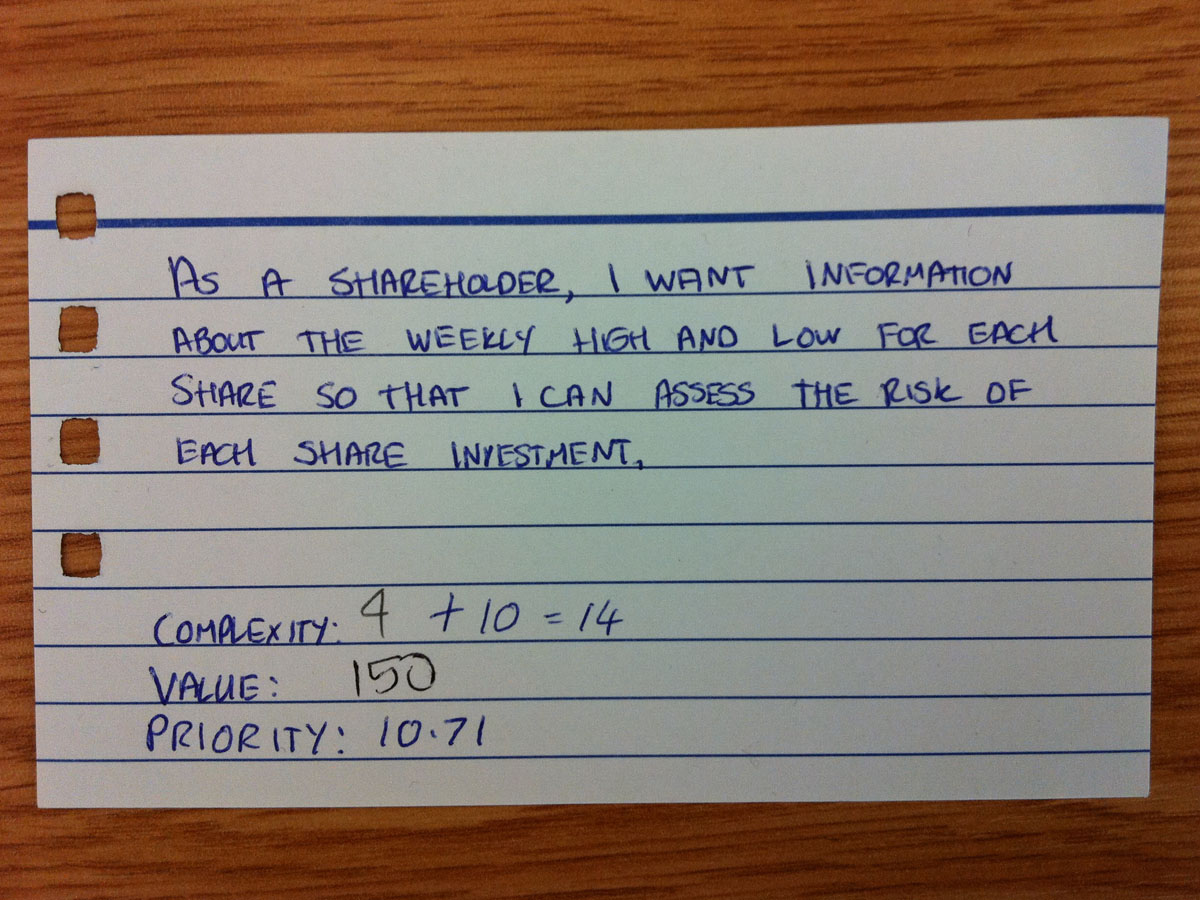 AS A SHAREHOLDER, I WANT INFORMATION
ABOUT THE WEEKLY HIGH AND LOW FOR EACH
SHARE SO THAT I CAN ASSESS THE RISK OF
EACH SHARE INVESTMENT.
COMPLEXITY: 4 + 10 = 14
VALUE: 150
PRIORITY: 10.71